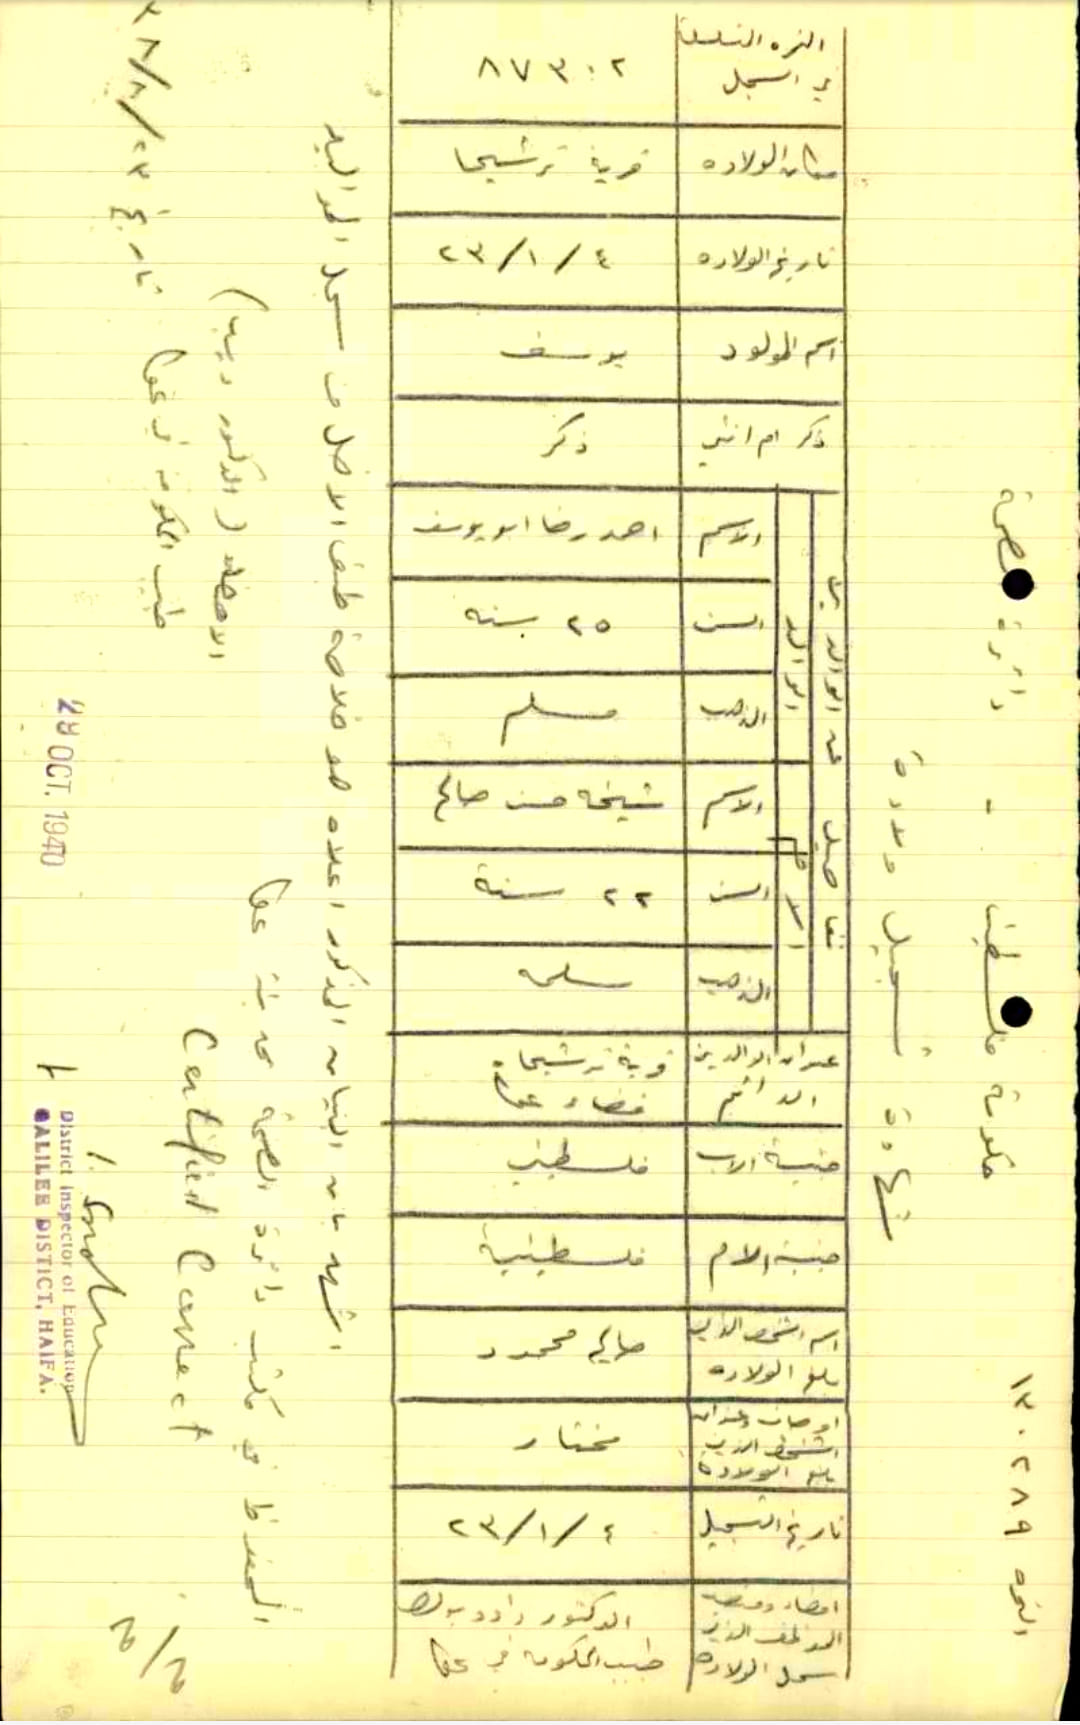 النمره ١٣٠٢٨٩
حكومة فلسطين - دائرة الصحة
شهادة تسجيل ولادة
النمره المتسلسله
في السجل
٨٧٣٠٢
مكان الولاده
قرية ترشيحا
تاريخ الولاده
٢٣/١/٤
اسم المولود
يوسف
ذكر ام انثى
ذكر
تفاصيل عن الوالدين
الوالد
الاسم
احمد رضا ابو يوسف
السن
٢٥ سنه
المذهب
مسلم
الام
الاسم
شيخه حسن صالح
السن
٢٢ سنة
المذهب
مسلمه
عنوان الوالدين
الدائم
قرية ترشيحا
قضاء عكا
جنسية الاب
فلسطيني
جنسية الام
فلسطينية
اسم الشخص الذي
بلغ الولاده
صالح محمود
اوصاف وعنوان
الشخص الذي
بلغ الولادة
مختار
تاريخ التسجيل
٢٣/١/٤
امضاء ومنصب
الموظف الذي
سجل الولاده
الدكتور داود بولص
طبيب الحكومة في عكا
اشهد بان البيان المذكور اعلاه هو خلاصة طبق الاصل من سجل المواليد
المحفوظ في مكتب دائرة الصحة بمدينة عكا
الامضاء (الدكتور ديب)
طبيب الحكومة في عكا
تاريخ
Certified Correct
District Inspector of Education
GALILEE DISTICT, HAIFA.
29 OCT. 1940